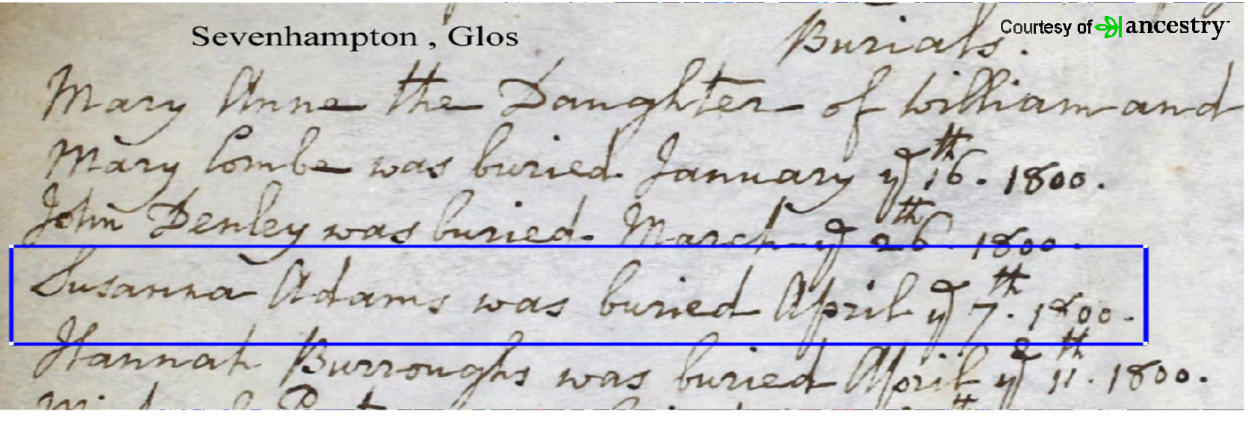 Sevenhampton , Glos
Courtesy of ancestry
Burials.
Mary Anne the Daughter of William and
Mary Combe was buried January yᵉ 16th. 1800.
John Denley was buried March yᵉ 26th 1800.
Susanna Adams was buried April yᵉ 7th. 1800.
Hannah Burroughs was buried April yᵉ 11th. 1800.